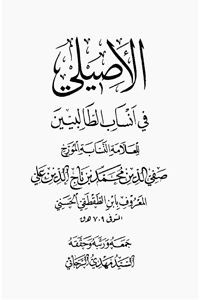 الأصيلي
في أنساب الطالبيين
للعلامة النسابة المؤرخ
صفي الدين محمد بن تاج الدين علي
المعروف بابن الطقطقي الحسني
المتوفى ٧٠٩ هـ ق
جمعه ورتبه وحققه
السيد مهدي الرجائي